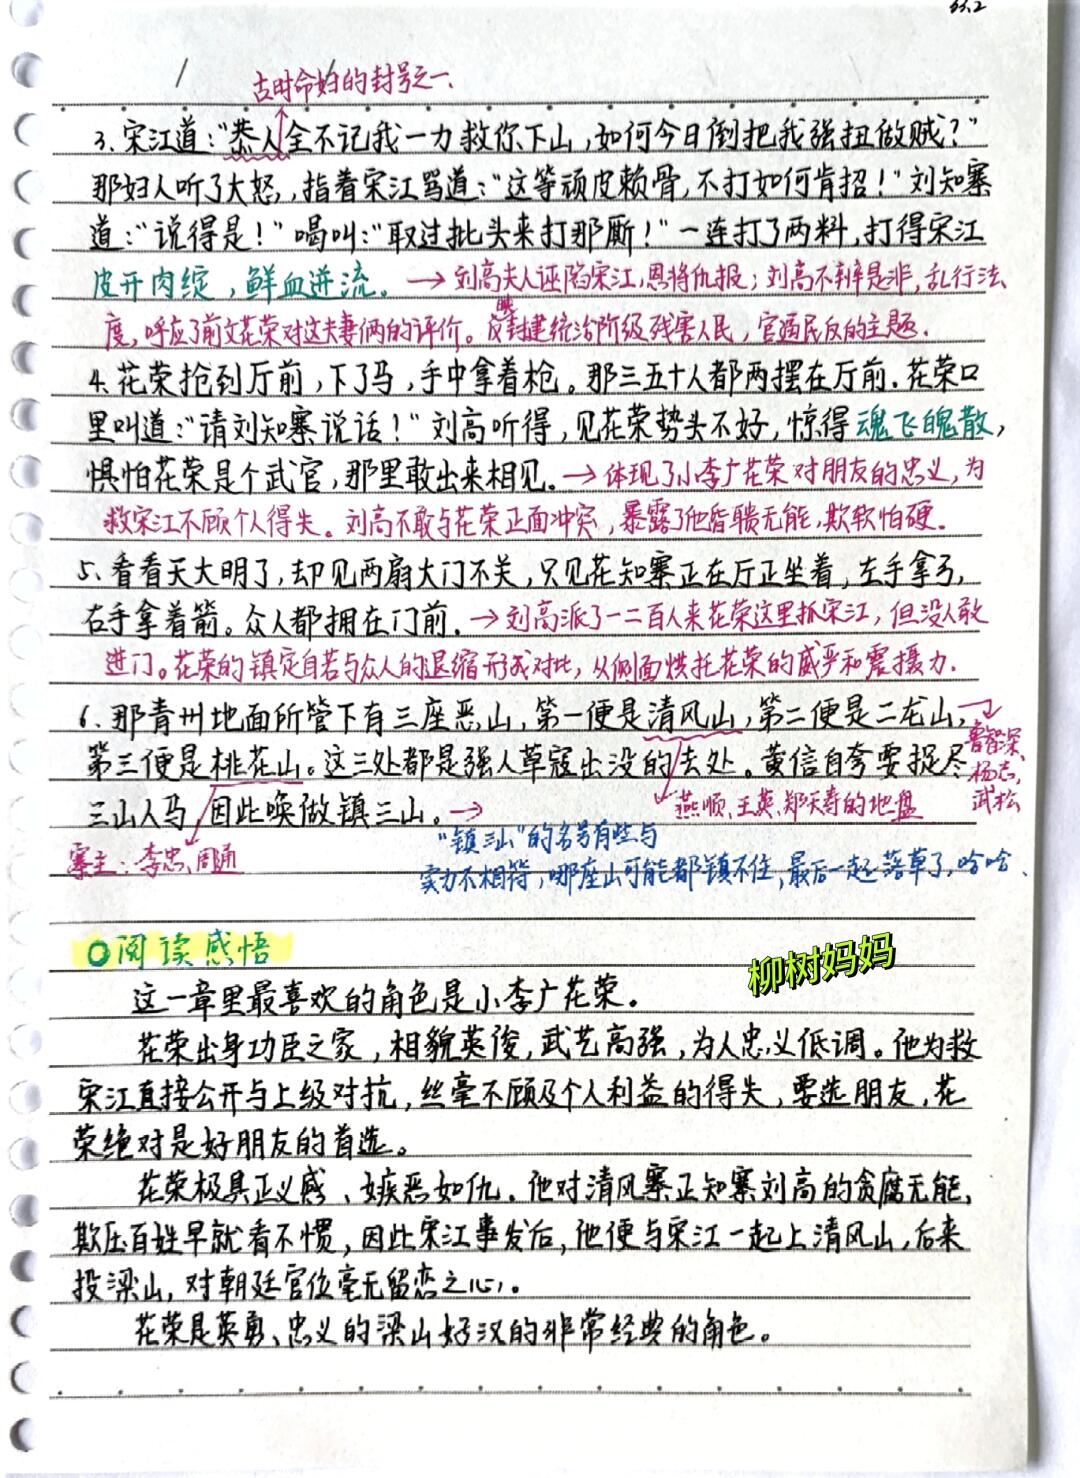 33.2
古时命妇的封号之一、
3、宋江道：“恭人全不记我一力救你下山，如何今日倒把我强扭做贼？”
那妇人听了大怒，指着宋江骂道：“这等顽皮赖骨，不打如何肯招！”刘知寨
道：“说得是！”喝叫：“取过批头来打那厮！”一连打了两料，打得宋江
皮开肉绽，鲜血迸流。→刘高夫人诬陷宋江，恩将仇报；刘高不辨是非，乱行法
度，呼应了前文花荣对这夫妻俩的评价。反映封建统治阶级残害人民，官逼民反的主题.
4、花荣抢到厅前，下了马，手中拿着枪。那三五十人都两摆在厅前.花荣口
里叫道：“请刘知寨说话！”刘高听得，见花荣势头不好，惊得魂飞魄散，
惧怕花荣是个武官，那里敢出来相见.→体现了小李广花荣对朋友的忠义，为
救宋江不顾个人得失。刘高不敢与花荣正面冲突，暴露了他昏聩无能，欺软怕硬.
5、看看天大明了，却见两扇大门不关，只见花知寨正在厅正坐着，左手拿弓，
右手拿着箭。众人都拥在门前.→刘高派了一二百人来花荣这里抓宋江，但没人敢
进门。花荣的镇定自若与众人的退缩形成对比，从侧面烘托花荣的威严和震摄力.
6、那青州地面所管下有三座恶山，第一便是清风山，第二便是二龙山，→
鲁智深、
第三便是桃花山。这三处都是强人草寇出没的去处。黄信自夸要捉尽
杨志，
武松
三山人马，因此唤做镇三山。→
燕顺、王英、郑天寿的地盘
寨主：李忠、周通
“镇三山”的名号有些与
实力不相符，哪座山可能都镇不住，最后一起落草了，哈哈、
阅读感悟
柳树妈妈
这一章里最喜欢的角色是小李广花荣。
花荣出身功臣之家，相貌英俊，武艺高强，为人忠义低调。他为救
宋江直接公开与上级对抗，丝毫不顾及个人利益的得失，要选朋友，花
荣绝对是好朋友的首选。
花荣极具正义感、嫉恶如仇.他对清风寨正知寨刘高的贪腐无能，
欺压百姓早就看不惯，因此宋江事发后，他便与宋江一起上清风山，后来
投梁山，对朝廷官位毫无留恋之心。
花荣是英勇、忠义的梁山好汉的非常经典的角色。